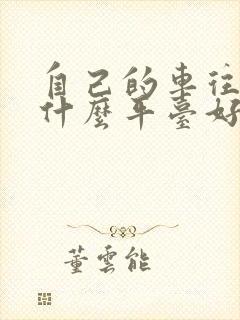 自己的車往
什麼平臺好
董雲能